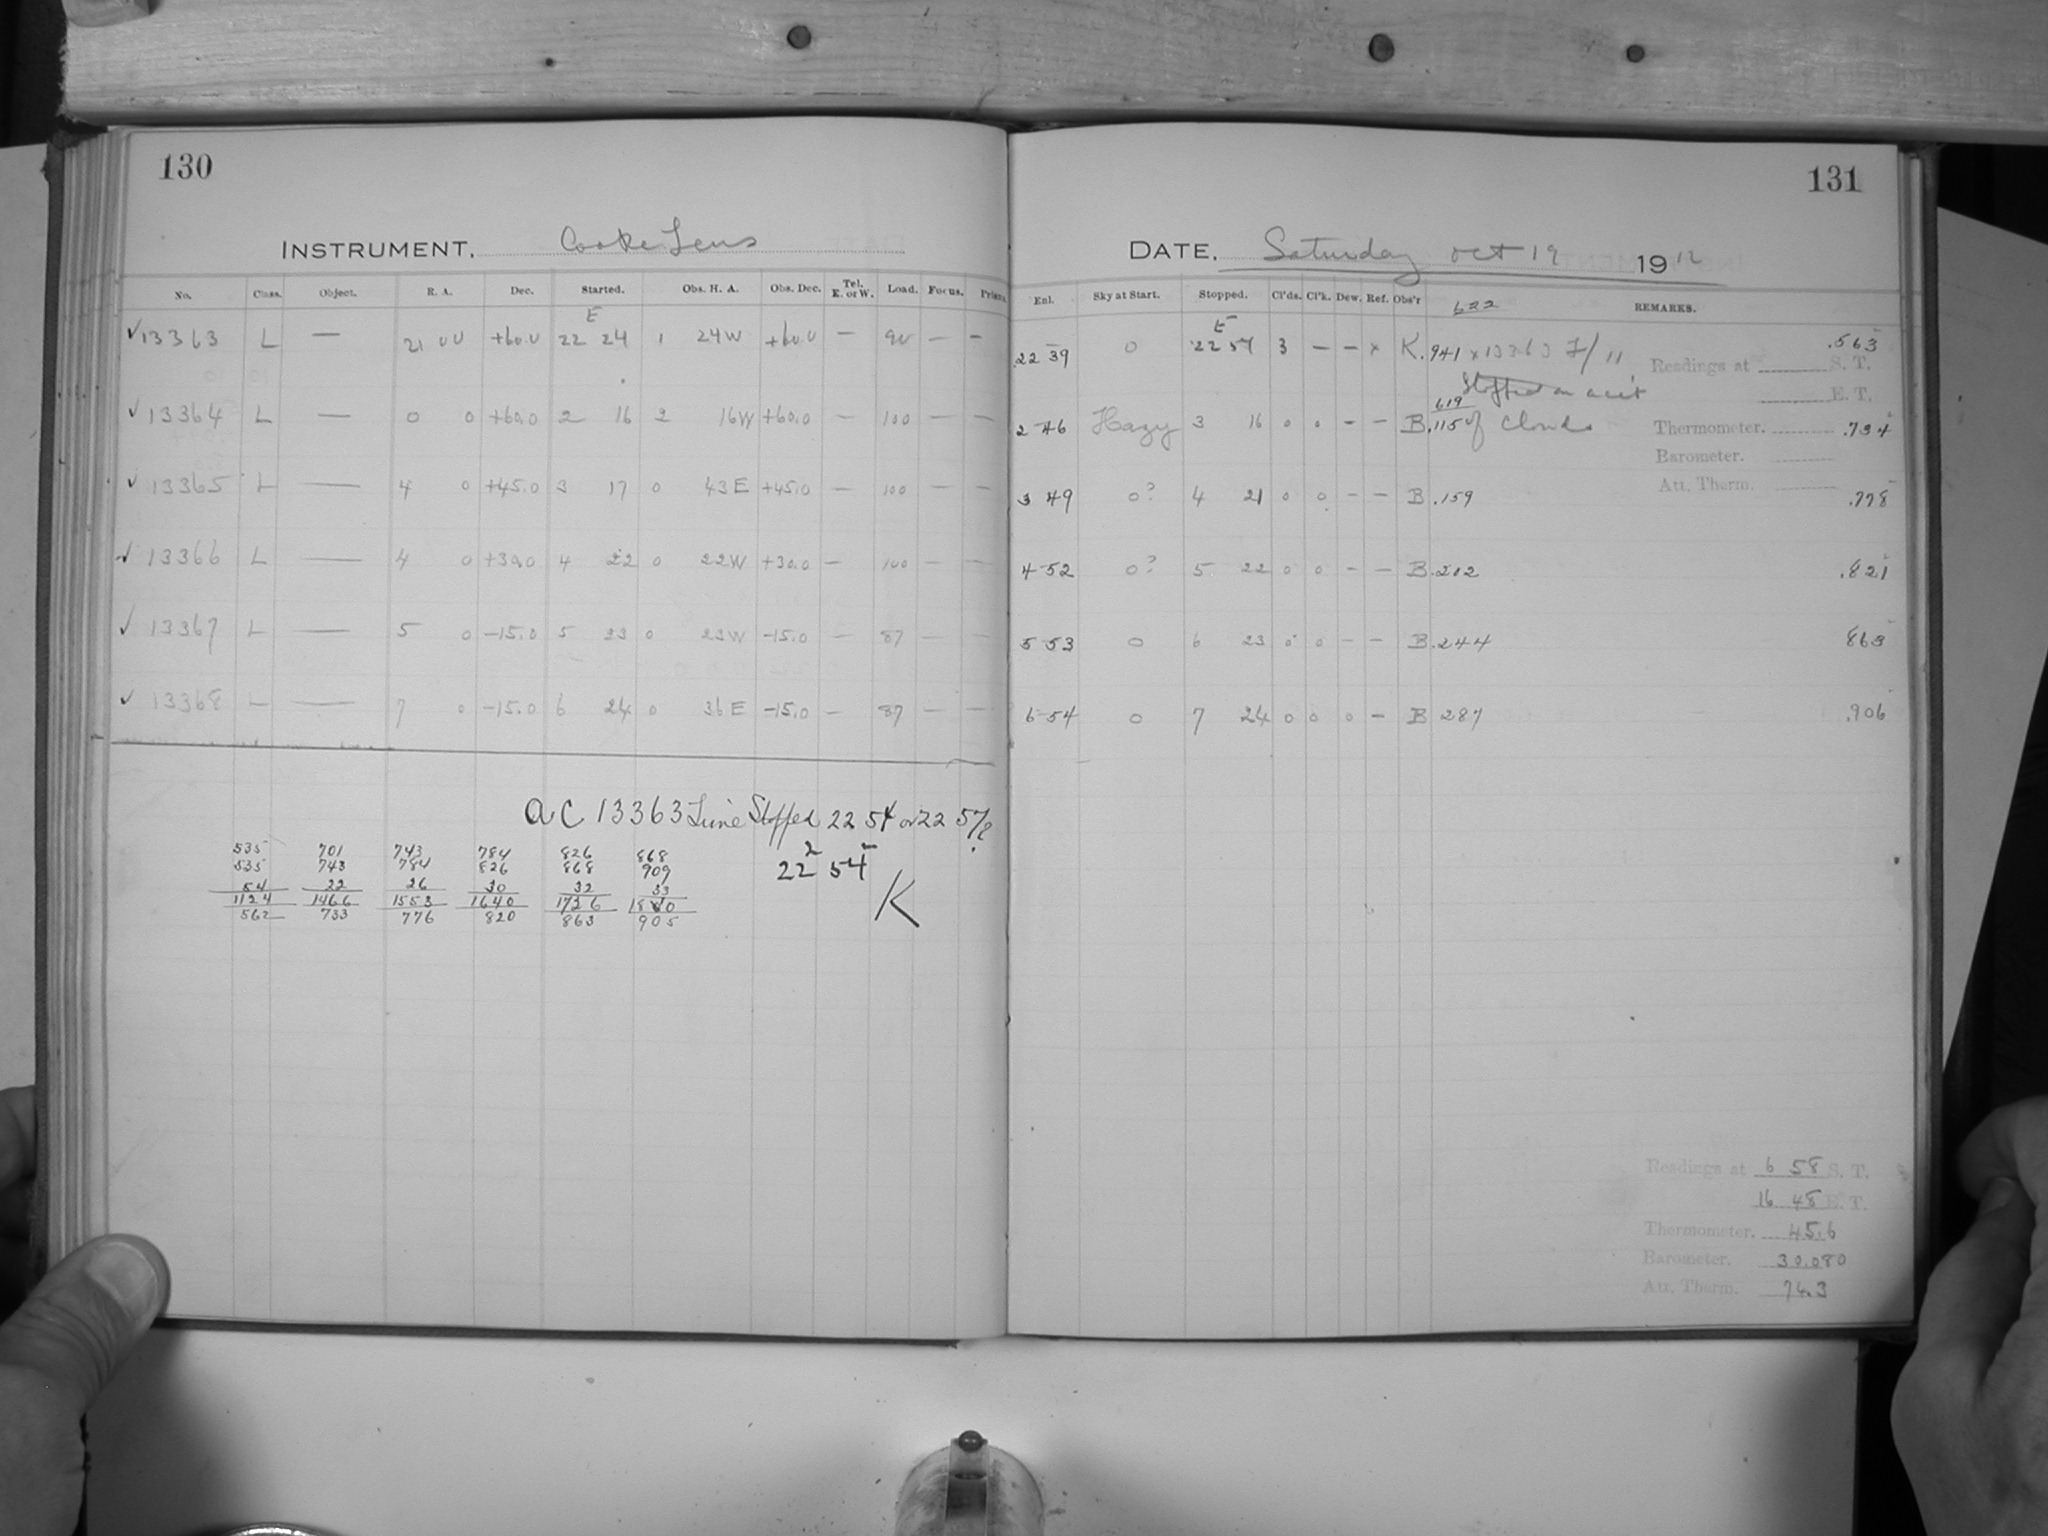 130
INSTRUMENT. Cooke Lens
No. Class. Object. R. A. Dec. Started. Obs. H. A. Obs. Dec. Tel. E. or W. Load. Focus. Prism.
E
✓13363 L — 21 00 +60.0 22 24 1 24W +60.0 — 90 — —
✓13364 L — 0 0 +60.0 2 16 2 16W +60.0 — 100 — —
✓13365 L — 4 0 +45.0 3 17 0 43E +45.0 — 100 — —
✓13366 L — 4 0 +30.0 4 22 0 22W +30.0 — 100 — —
✓13367 L — 5 0 -15.0 5 23 0 23W -15.0 — 87 — —
✓13368 L — 7 0 -15.0 6 24 0 36E -15.0 — 87 — —
AC 13363 Time Stopped 22 54 or 22 57?
22 54
K
535 701 743 784 826 868
535 743 784 826 868 909
54 22 26 30 32 33
1124 1466 1553 1640 1726 1810
562 733 776 820 863 905
131
DATE. Saturday Oct 19 1912
Enl. Sky at Start. Stopped. Cl'ds. Cl'k. Dew. Ref. Obs'r 622 REMARKS.
E
22 39 0 22 54 3 — — x K. .941 x 13363 F/11 .563
Readings at S. T.
Stopped on acct
E. T.
619
2 46 Hazy 3 16 0 0 — — B .115 of clouds Thermometer. .734
Barometer.
Att. Therm.
3 49 0? 4 21 0 0 — — B .159 .778
4 52 0? 5 22 0 0 — — B .202 .821
5 53 0 6 23 0 0 — — B .244 863
6 54 0 7 24 0 0 0 — B 287 .906
Readings at 6 58 S. T.
16 48 E. T.
Thermometer. 45.6
Barometer. 30.080
Att. Therm. 74.3